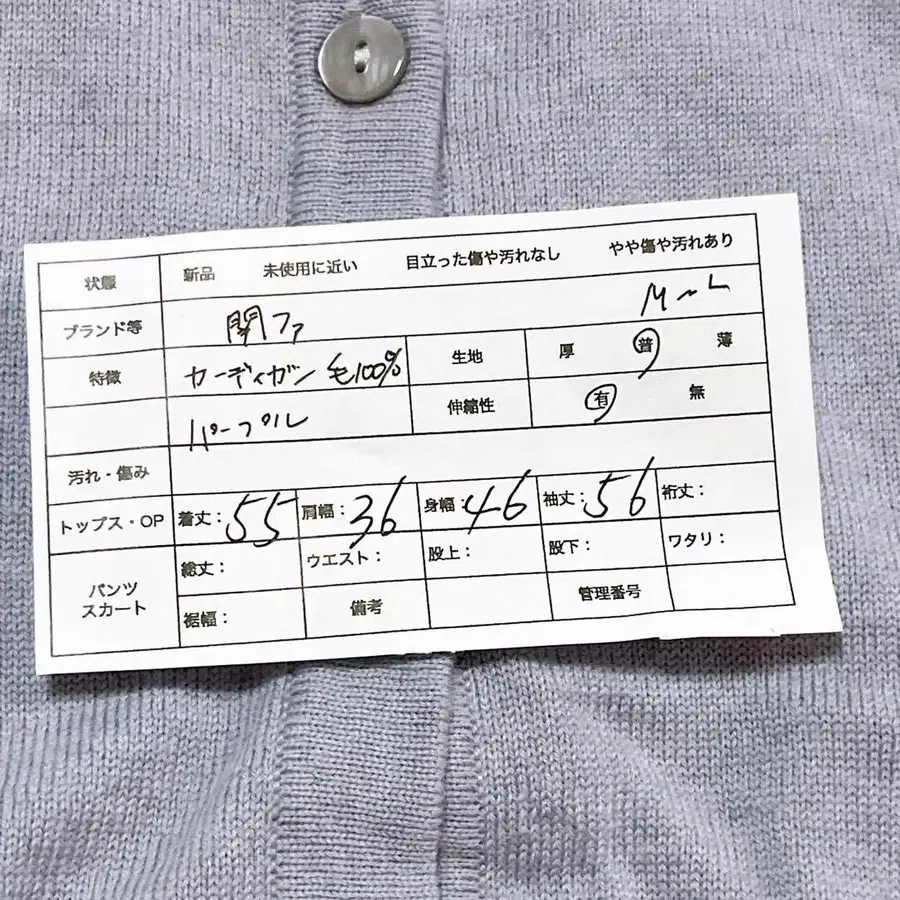 状態 新品 未使用に近い 目立った傷や汚れなし やや傷や汚れあり
ブランド等 関ファ M~L
特徴 カーディガン 毛100% 生地 厚 普 薄
パープル 伸縮性 有 無
汚れ・傷み
トップス・OP 着丈:55 肩幅:36 身幅:46 袖丈:56 裄丈:
パンツ スカート 総丈: ウエスト: 股上: 股下: ワタリ:
裾幅: 備考 管理番号